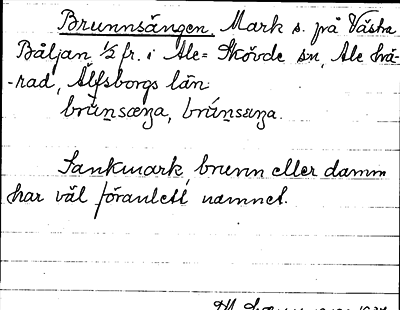 Brunnsängen, Mark s. på Västra
Båljan ½ fr. i Ale=Skövde sn, Ale hä-
-rad, Älfsborgs län.
Sankmark, brunn eller damm
har väl föranlett namnet.